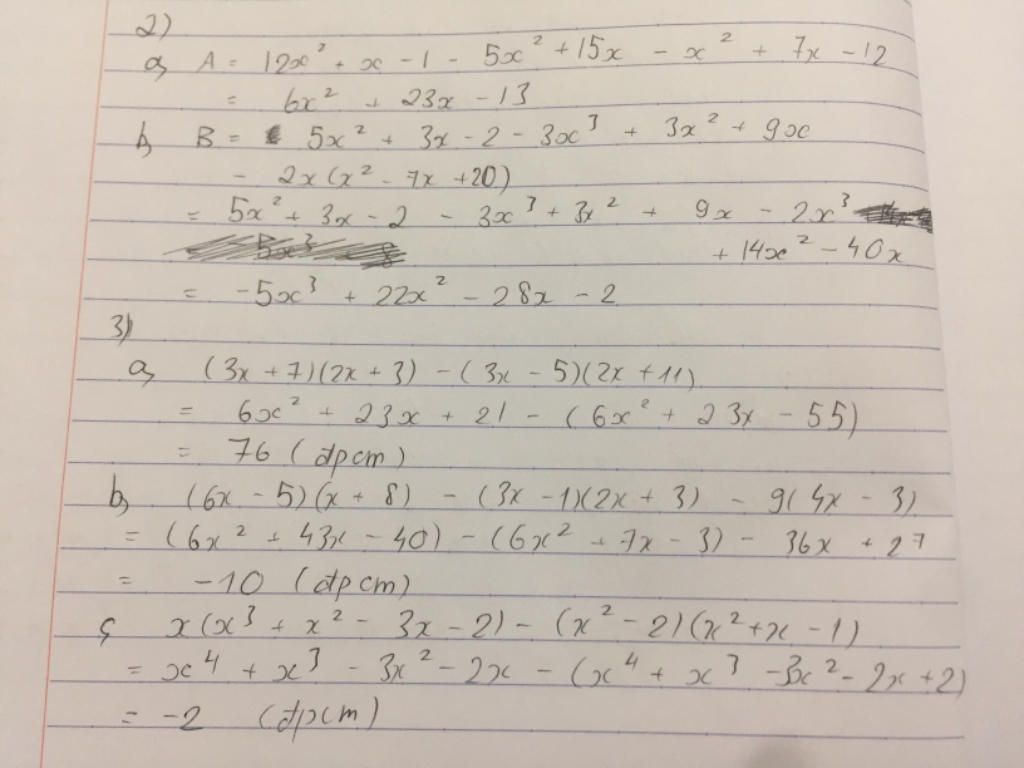 2)
a, A = 12x² + x - 1 - 5x² + 15x - x² + 7x - 12
= 6x² + 23x - 13
b, B = 5x² + 3x - 2 - 3x³ + 3x² + 9x
- 2x(x² - 7x + 20)
= 5x² + 3x - 2 - 3x³ + 3x² + 9x - 2x³
+ 14x² - 40x
= -5x³ + 22x² - 28x - 2
3)
a, (3x + 7)(2x + 3) - (3x - 5)(2x + 11)
= 6x² + 23x + 21 - (6x² + 23x - 55)
= 76 (đpcm)
b, (6x - 5)(x + 8) - (3x - 1)(2x + 3) - 9(4x - 3)
= (6x² + 43x - 40) - (6x² + 7x - 3) - 36x + 27
= -10 (đpcm)
c, x(x³ + x² - 3x - 2) - (x² - 2)(x² + x - 1)
= x⁴ + x³ - 3x² - 2x - (x⁴ + x³ - 3x² - 2x + 2)
= -2 (đpcm)